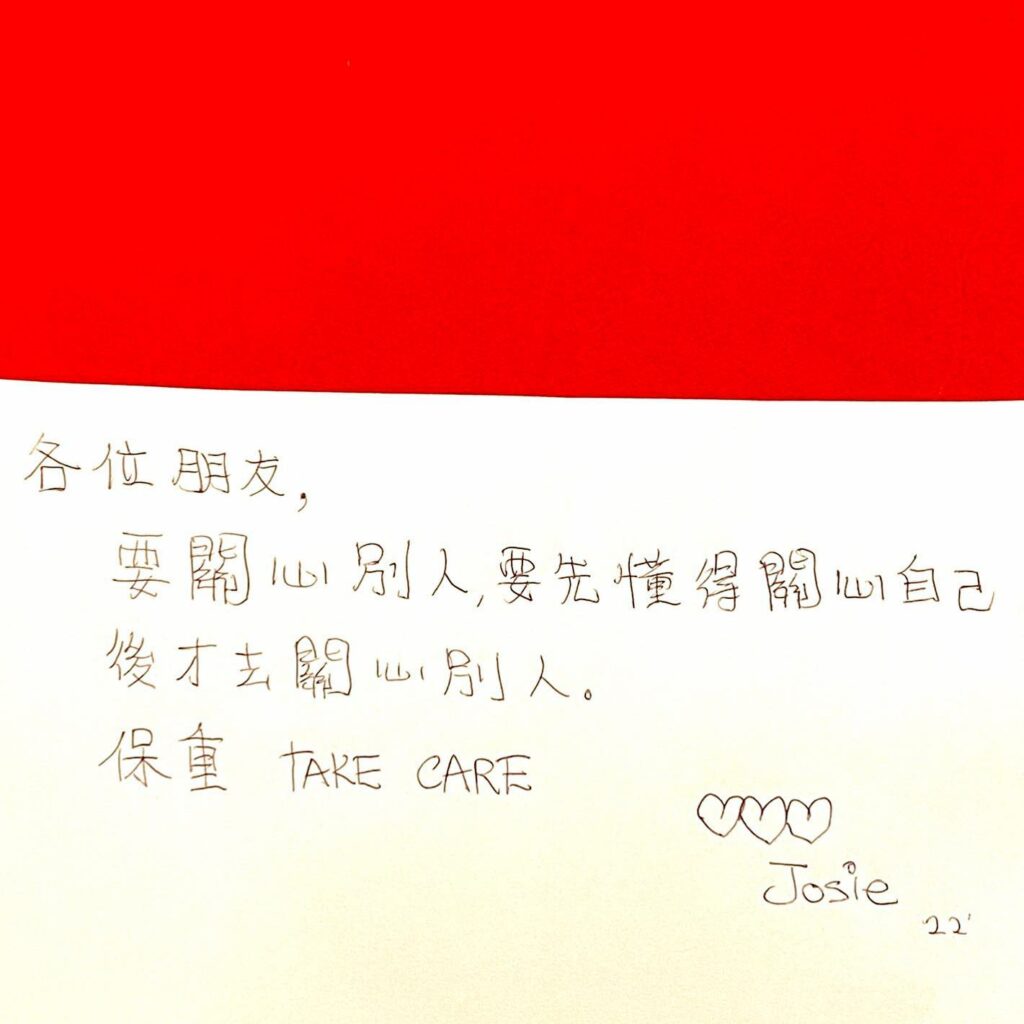 各位朋友,
要關心別人,要先懂得關心自己
後才去關心別人。
保重 TAKE CARE
Josie
22'